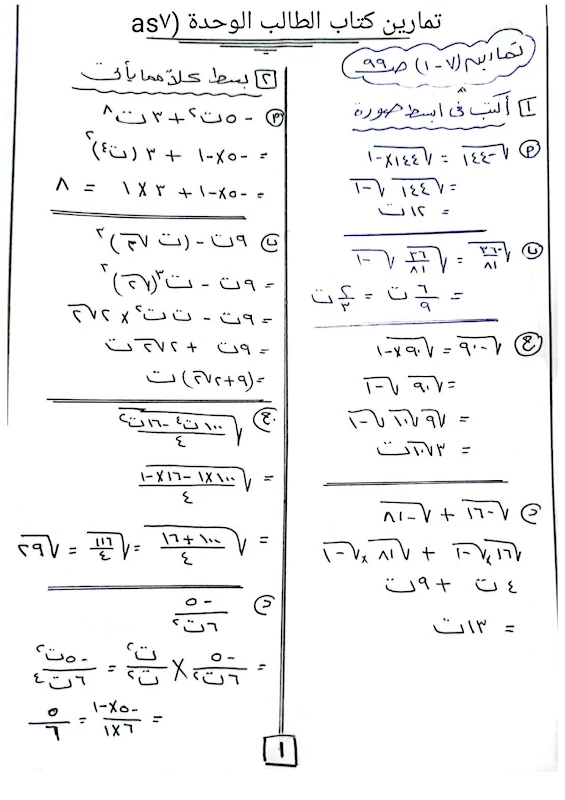 تمارين كتاب الطالب الوحدة as٧)
تمارين (٧-١) ص ٩٩
١ أكتب فى أبسط صورة
P √-١٤٤ = √١٤٤×-١
= √١٤٤ √-١
= ١٢ت
ب √-٣٦/٨١ = √٣٦/٨١ √-١
= ٦/٩ ت = ٢/٣ ت
ج √-٩٠ = √٩٠×-١
= √٩٠ √-١
= √٩ √١٠ √-١
= ٣√١٠ ت
د √-١٦ + √-٨١
√١٦ × √-١ + √٨١ × √-١
٤ت + ٩ت
= ١٣ت
٢ بسط كلاً مما يأتى
P -٥ت٢ + ٣ت٨
= -٥×-١ + ٣(ت٤)٢
= -٥×-١ + ٣×١ = ٨
ب ٩ت - (ت√٢)٣
= ٩ت - ت٣(√٢)٣
= ٩ت - ت ت٢ × ٢√٢
= ٩ت + ٢√٢ ت
= (٩+٢√٢)ت
ج √١٠٠ت٤-١٦ت٢/٤
= √١٠٠×١-١٦×-١/٤
= √١٠٠+١٦/٤ = √١١٦/٤ = √٢٩
د -٥/٦ت٢
= -٥/٦ت٢ × ت٢/ت٢ = -٥ت٢/٦ت٤
= -٥×-١/٦×١ = ٥/٦
١